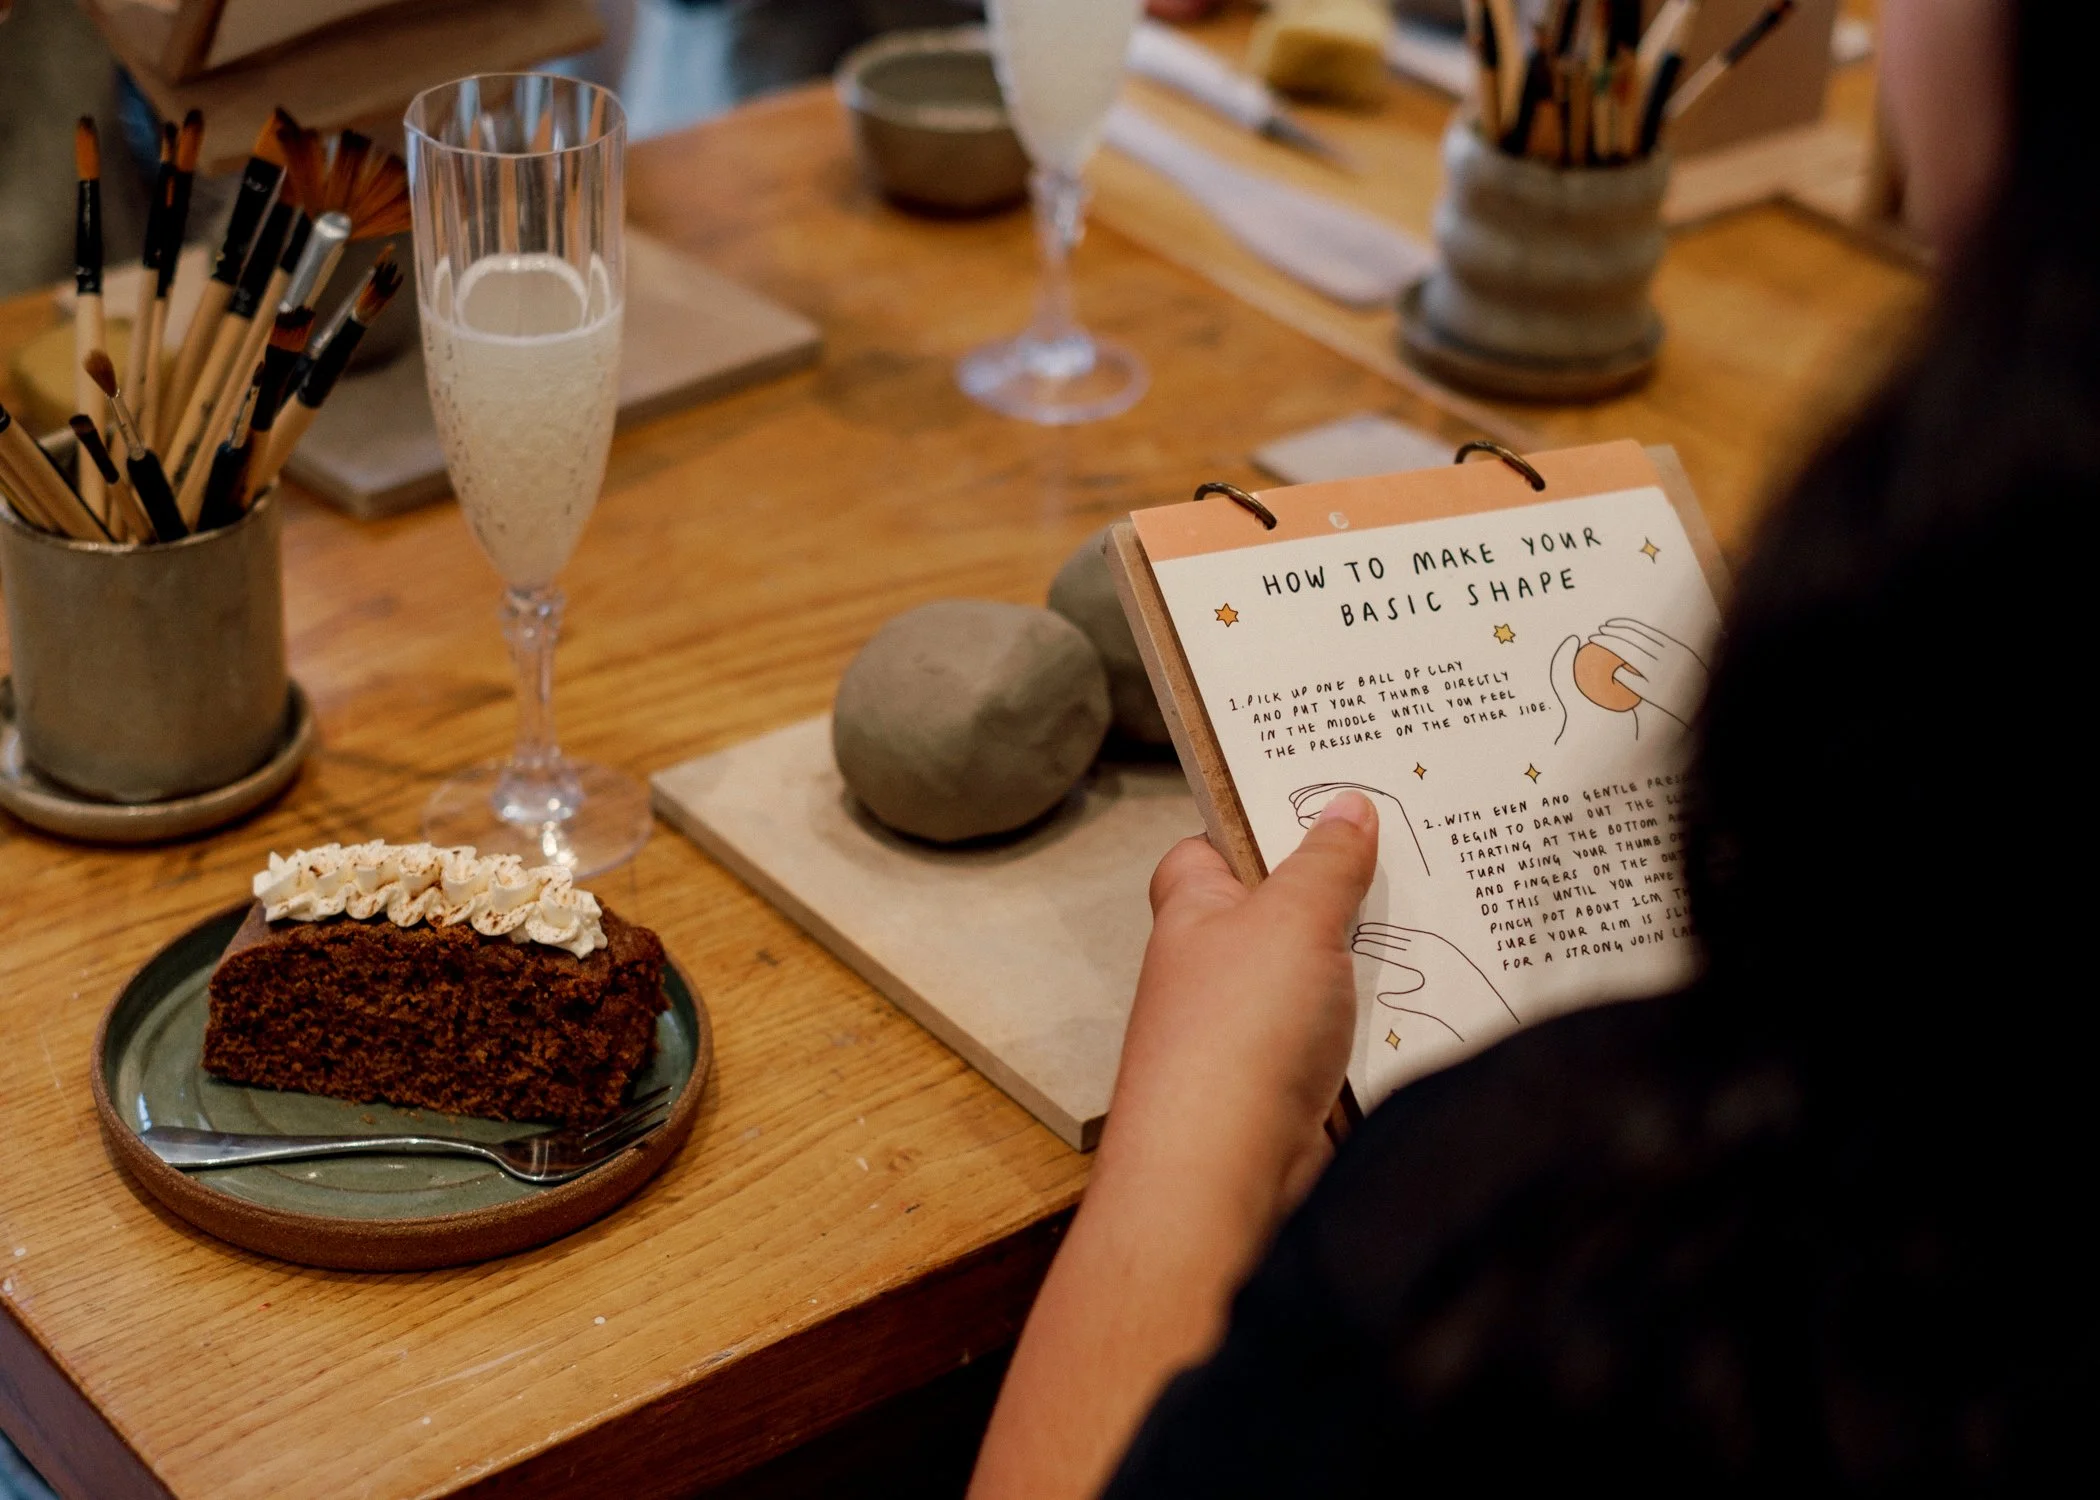 HOW TO MAKE YOUR
BASIC SHAPE
1. PICK UP ONE BALL OF CLAY
AND PUT YOUR THUMB DIRECTLY
IN THE MIDDLE UNTIL YOU FEEL
THE PRESSURE ON THE OTHER SIDE.
2. WITH EVEN AND GENTLE
BEGIN TO DRAW OUT THE
STARTING AT THE BOTTOM
TURN USING YOUR THUMB
AND FINGERS ON THE
DO THIS UNTIL YOU HAVE
PINCH POT ABOUT 1CM
SURE YOUR RIM IS
FOR A STRONG JOIN